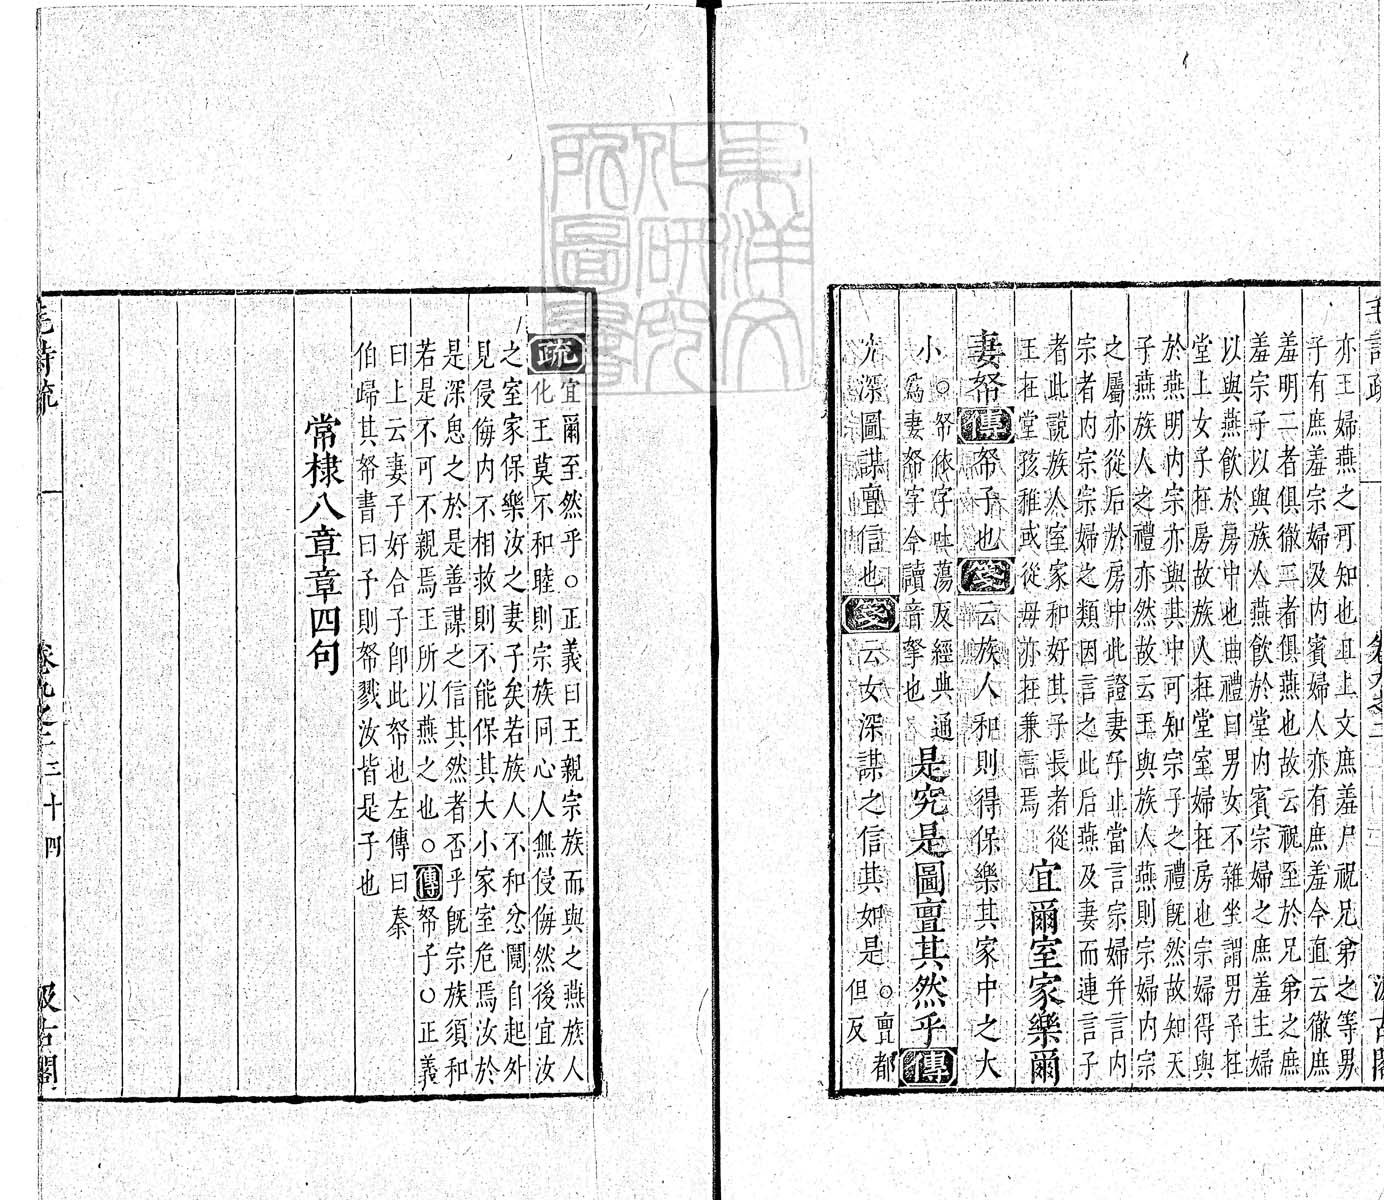 毛詩疏
卷九之二
汲古閣
亦王婦燕之可知也且上文庶羞尸祝兄弟之等男
子有庶羞宗婦及内賓婦人亦有庶羞今直云徹庶
羞明二者俱徹二者俱燕也故云祝至於兄弟之庶
羞宗子以與族人燕飲於堂内賓宗婦之庶羞主婦
以與燕飲於房中也曲禮曰男女不雜坐謂男子在
堂上女子在房故族人在堂室婦在房也宗婦得與
於燕明内宗亦與其中可知宗子之禮旣然故知天
子燕族人之禮亦然故云王與族人燕則宗婦内宗
之屬亦從后於房中此證妻子止當言宗婦幷言内
宗者内宗宗婦之類因言之此后燕及妻而連言子
者此說族人室家和好其子長者從
王在堂孩稚或從母亦在兼言焉
宜爾室家樂爾
妻帑傳帑子也箋云族人和則得保樂其家中之大
小○帑依字吐蕩反經典通
爲妻帑字今讀音孥也
是究是圖亶其然乎傳
究深圖謀亶信也箋云女深謀之信其如是○亶都
但反
疏宜爾至然乎○正義曰王親宗族而與之燕族人
化王莫不和睦則宗族同心人無侵侮然後宜汝
之室家保樂汝之妻子矣若族人不和忿鬩自起外
見侵侮内不相救則不能保其大小家室危焉汝於
是深思之於是善謀之信其然者否乎旣宗族須和
若是不可不親焉王所以燕之也○傳帑子○正義
曰上云妻子好合子卽此帑也左傳曰秦
伯歸其帑書曰予則帑戮汝皆是子也
常棣八章章四句
毛詩疏
卷九之二
三十四
汲古閣
東洋文
化研究
所圖書